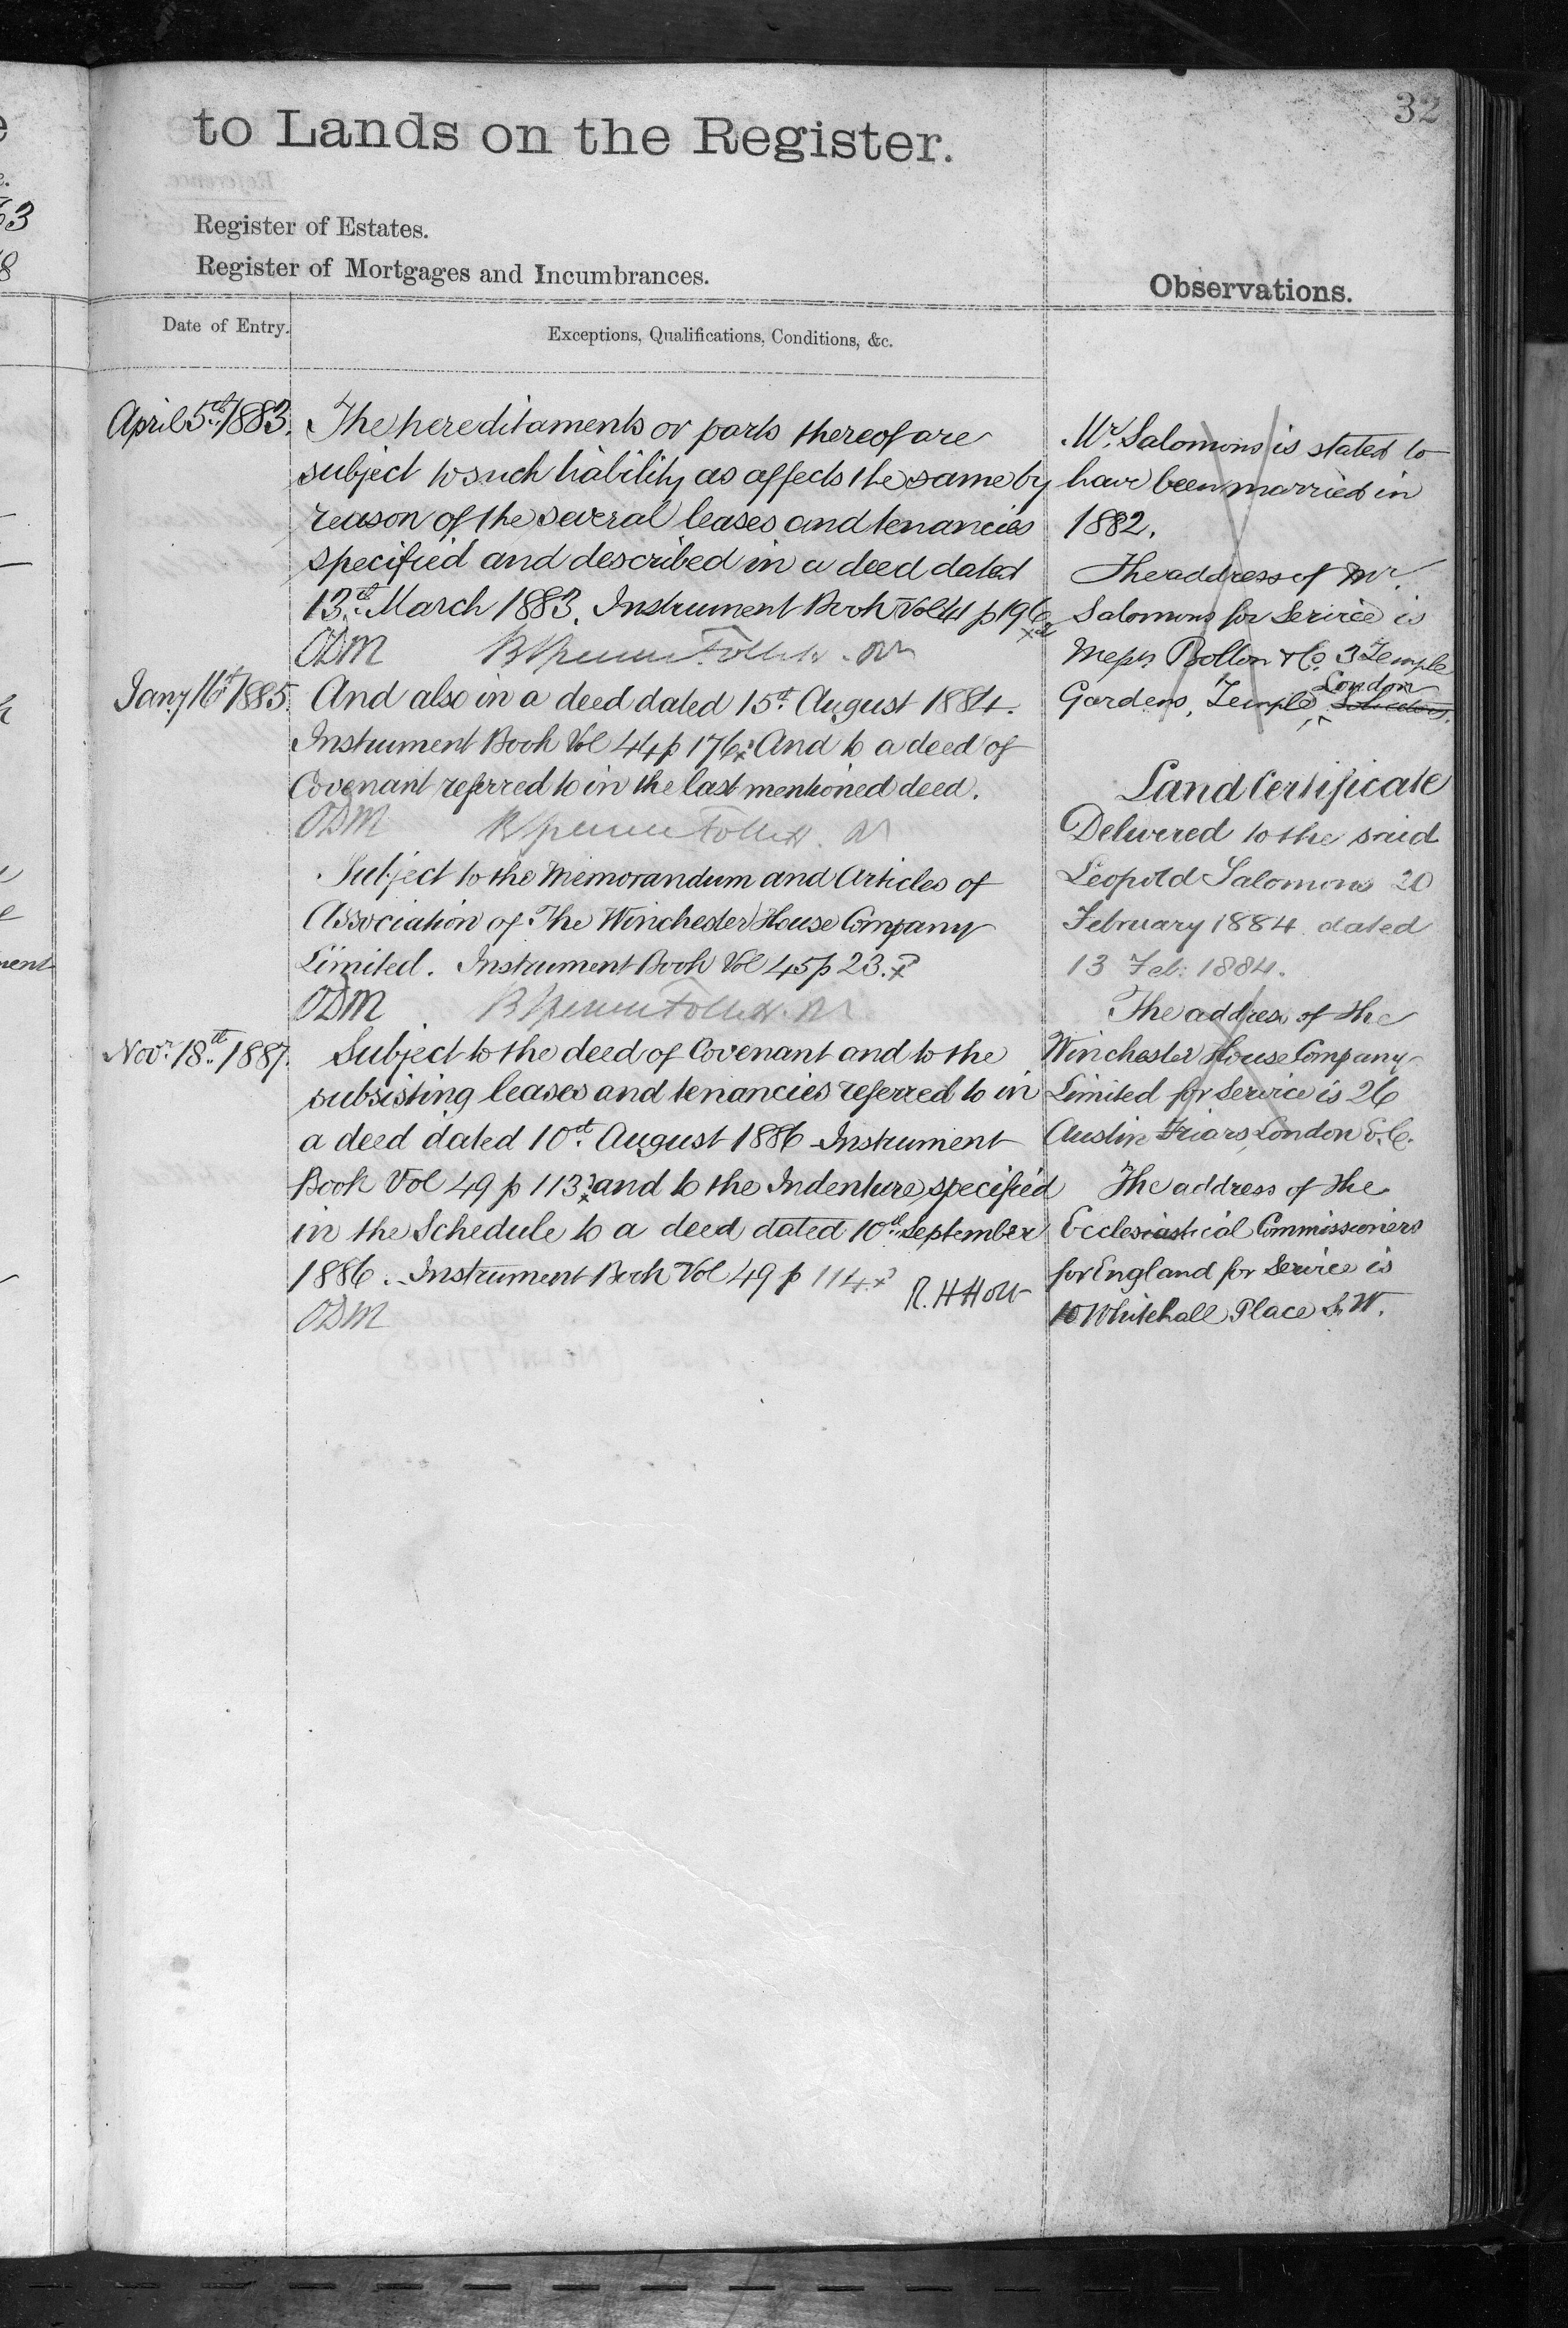 32
to Lands on the Register.
Register of Estates.
Register of Mortgages and Incumbrances.
Observations.
Date of Entry.
Exceptions, Qualifications, Conditions, &c.
April 5th 1883.
The hereditaments or parts thereof are
subject to such liability as affects the same by
reason of the several leases and tenancies
specified and described in a deed dated
13th March 1883. Instrument Book Vol 41 p 196
ODM
Jany 16th 1885.
And also in a deed dated 15th August 1884.
Instrument Book Vol 44 p 176 And to a deed of
Covenant referred to in the last mentioned deed.
ODM
Subject to the Memorandum and Articles of
Association of The Winchester House Company
Limited. Instrument Book Vol 45 p 23.
ODM
Novr 18th 1887.
Subject to the deed of Covenant and to the
subsisting leases and tenancies referred to in
a deed dated 10th August 1886 Instrument
Book Vol 49 p 113 and to the Indenture specified
in the Schedule to a deed dated 10th September
1886. Instrument Book Vol 49 p 114
R. H Holt
ODM
Mr. Salomons is stated to
have been married in
1882.
The address of Mr
Salomons for Service is
Messrs Bolton & Co. 3 Temple
Gardens, Temple London
Land Certificate
Delivered to the said
Leopold Salomons 20
February 1884 dated
13 Feb: 1884.
The address of the
Winchester House Company
Limited for Service is 26
Austin Friars, London E.C.
The address of the
Ecclesiastical Commissioners
for England for Service is
10 Whitehall Place S.W.